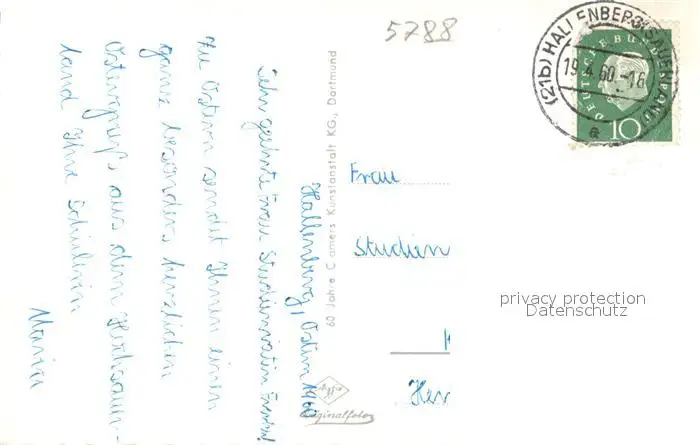 5788
(21b) HALLENBERG (SAUERLAND)
19.4.60.-16
a
DEUTSCHE BUNDESPOST
10
Hallenberg, Ostern 1960
Sehr geehrte Frau Studienrätin
Zu Ostern sendet Ihnen einen
ganz besonders herzlichen
Ostergruß aus dem Hochsauer-
land Ihre Schülerin
Maria
60 Jahre Camers Kunstanstalt KG., Dortmund
Agfa
Originalfoto
Frau
Studien
Her
privacy protection
Datenschutz